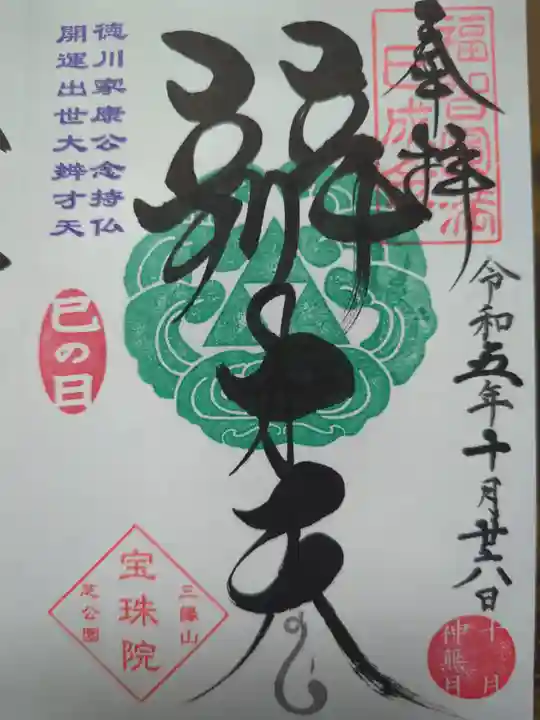 奉拝
令和五年十月廿八日
辨才天
徳川家康公念持仏
開運出世大辨才天
巳の日
三縁山
宝珠院
芝公園
十月
神無月